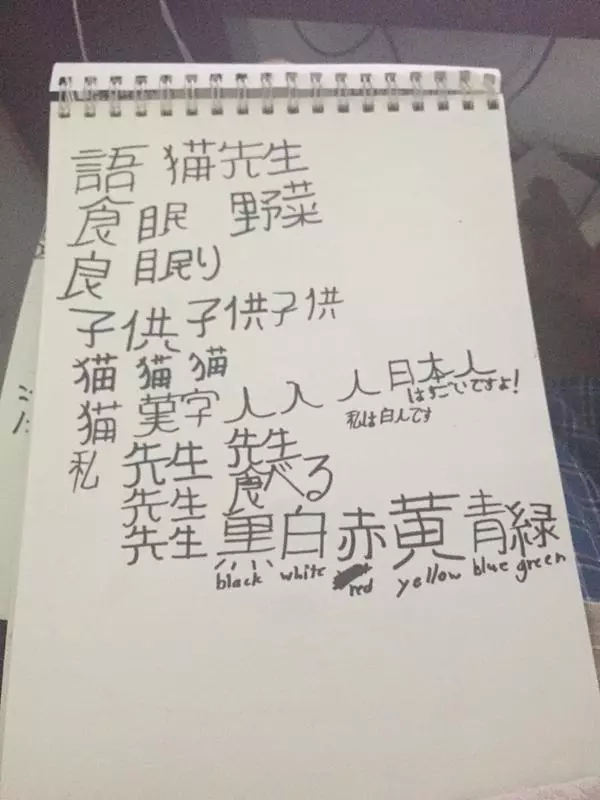 語 猫先生
食 眠 野菜
良 眠り
子供子供子供
猫 猫 猫
猫 漢字 人 入 人 日本人
はすごいですよ!
私は白人です
私 先生 先生
先生 食べる
先生 黒 白 赤 黄 青 緑
black white red yellow blue green